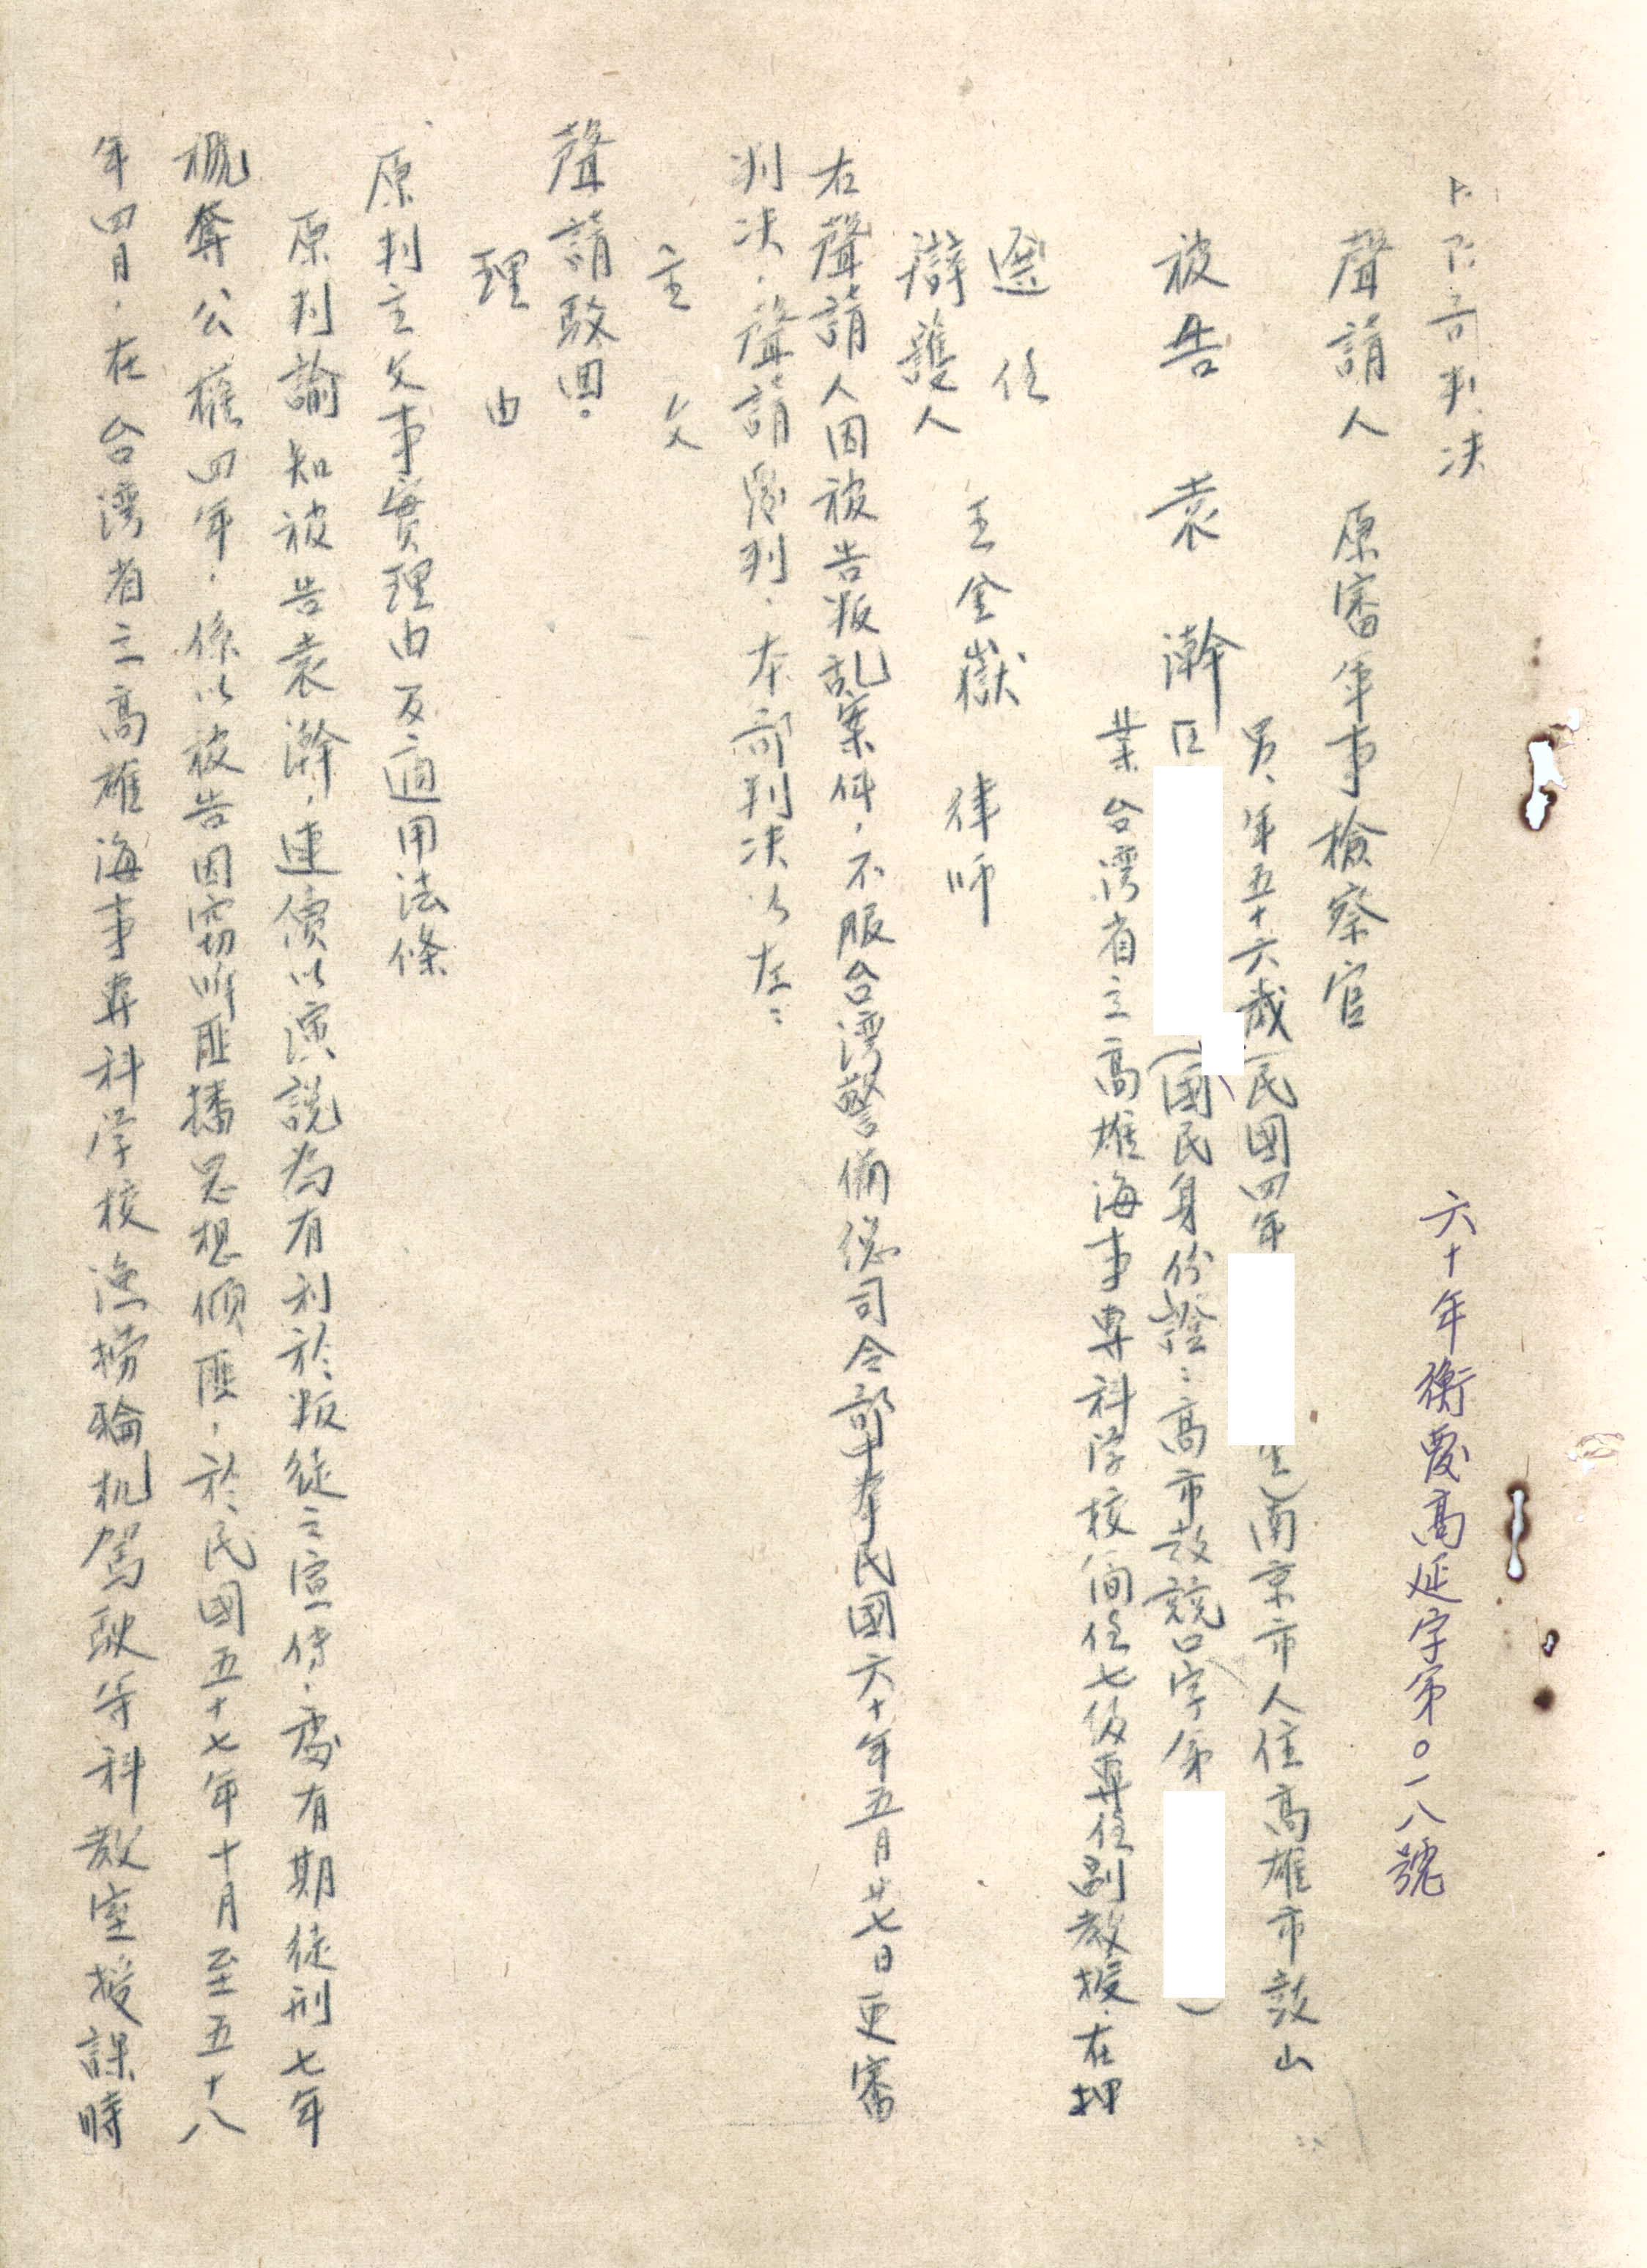 判決
六十年衡覆高延字第〇一八號
聲請人 原審軍事檢察官
被告 袁 瀚
男、年五十六歲(民國四年
生)南京市人住高雄市鼓山
區
(國民身份證:高市鼓競口字第
)
業台灣省立高雄海事專科学校簡任七級專任副教授.在押
選任
辯護人 王金嶽 律師
右聲請人因被告叛乱案件,不服台灣警備總司令部中華民國六十年五月廿七日更審
判决.聲請覆判.本部判决如左:
主 文
聲請駁回。
理 由
原判主文事實理由及適用法條
原判諭知被告袁瀚,連續以演說為有利於叛徒之宣傳.處有期徒刑七年
褫奪公權四年.係以被告因竊听匪播思想傾匪,於民國五十七年十月至五十八
年四月.在台灣省立高雄海事專科学校漁撈輪机駕駛等科教室授課時